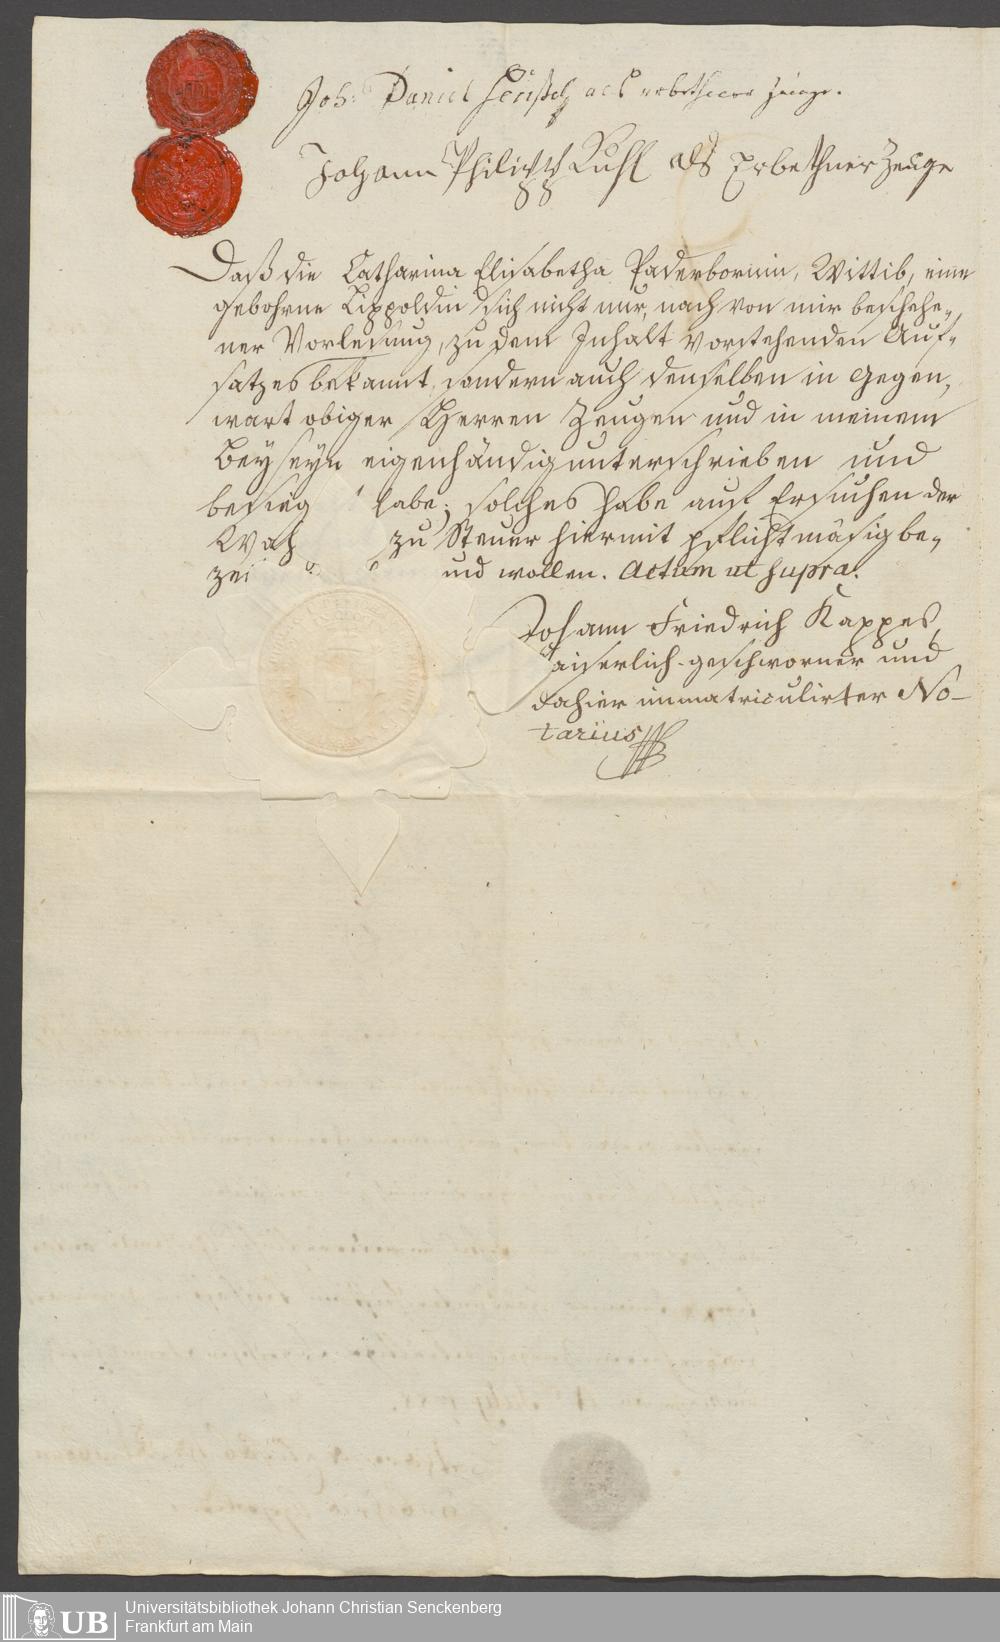 Joh: Daniel als erbethener Zeuge.
Johann Philipp Kuhl als Erbethner Zeuge
Daß die Catharina Elisabetha Paderbornin, Wittib, eine
gebohrne Lippoldin sich nicht nur, nach von mir beschehe-
ner Vorlesung, zu dem Inhalt vorstehenden Auf-
satzes bekannt, sondern auch denselben in Gegen-
wart obiger Herren Zeugen und in meinem
Beyseyn eigenhändig unterschrieben und
besieg habe; solches habe auf Ersuchen der
Wah zu Steuer hiermit pflichtmäsig be-
zei und wollen. Actum ut supra.
Johann Friedrich Kappes,
Kaiserlich-geschworner und
dahier immatriculirter No-
tarius
UB
Universitätsbibliothek Johann Christian Senckenberg
Frankfurt am Main